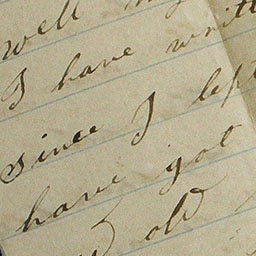 well
I have writt
since I left
have got
old